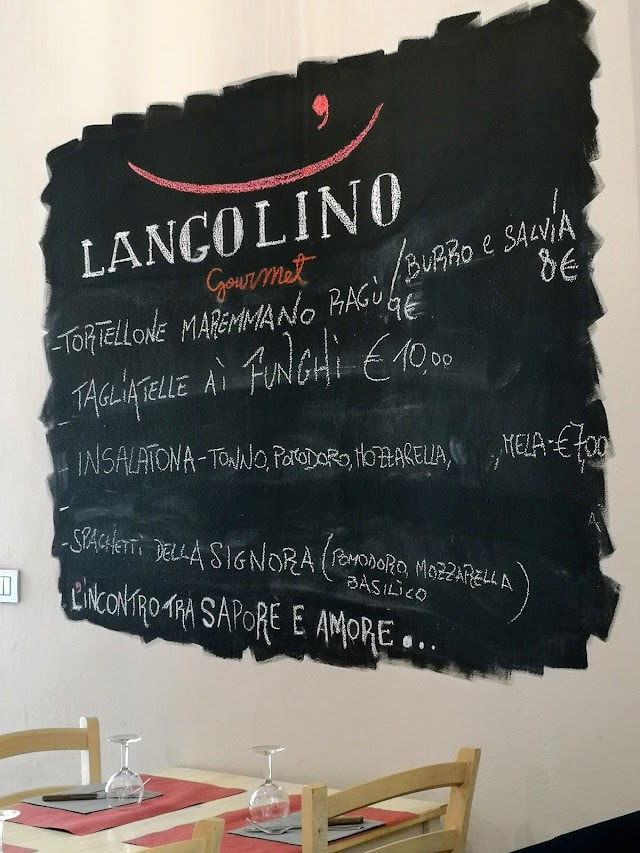 LANGOLINO
Gourmet
-TORTELLONE MAREMMANO RAGÙ / BURRO e SALVIA
9€ 8€
- TAGLIATELLE AI FUNGHI € 10,00
- INSALATONA - TONNO, POMODORO, MOZZARELLA, , MELA - €7,00
-
- SPAGHETTI DELLA SIGNORA (POMODORO, MOZZARELLA
BASILICO)
L'INCONTRO TRA SAPORE E AMORE...